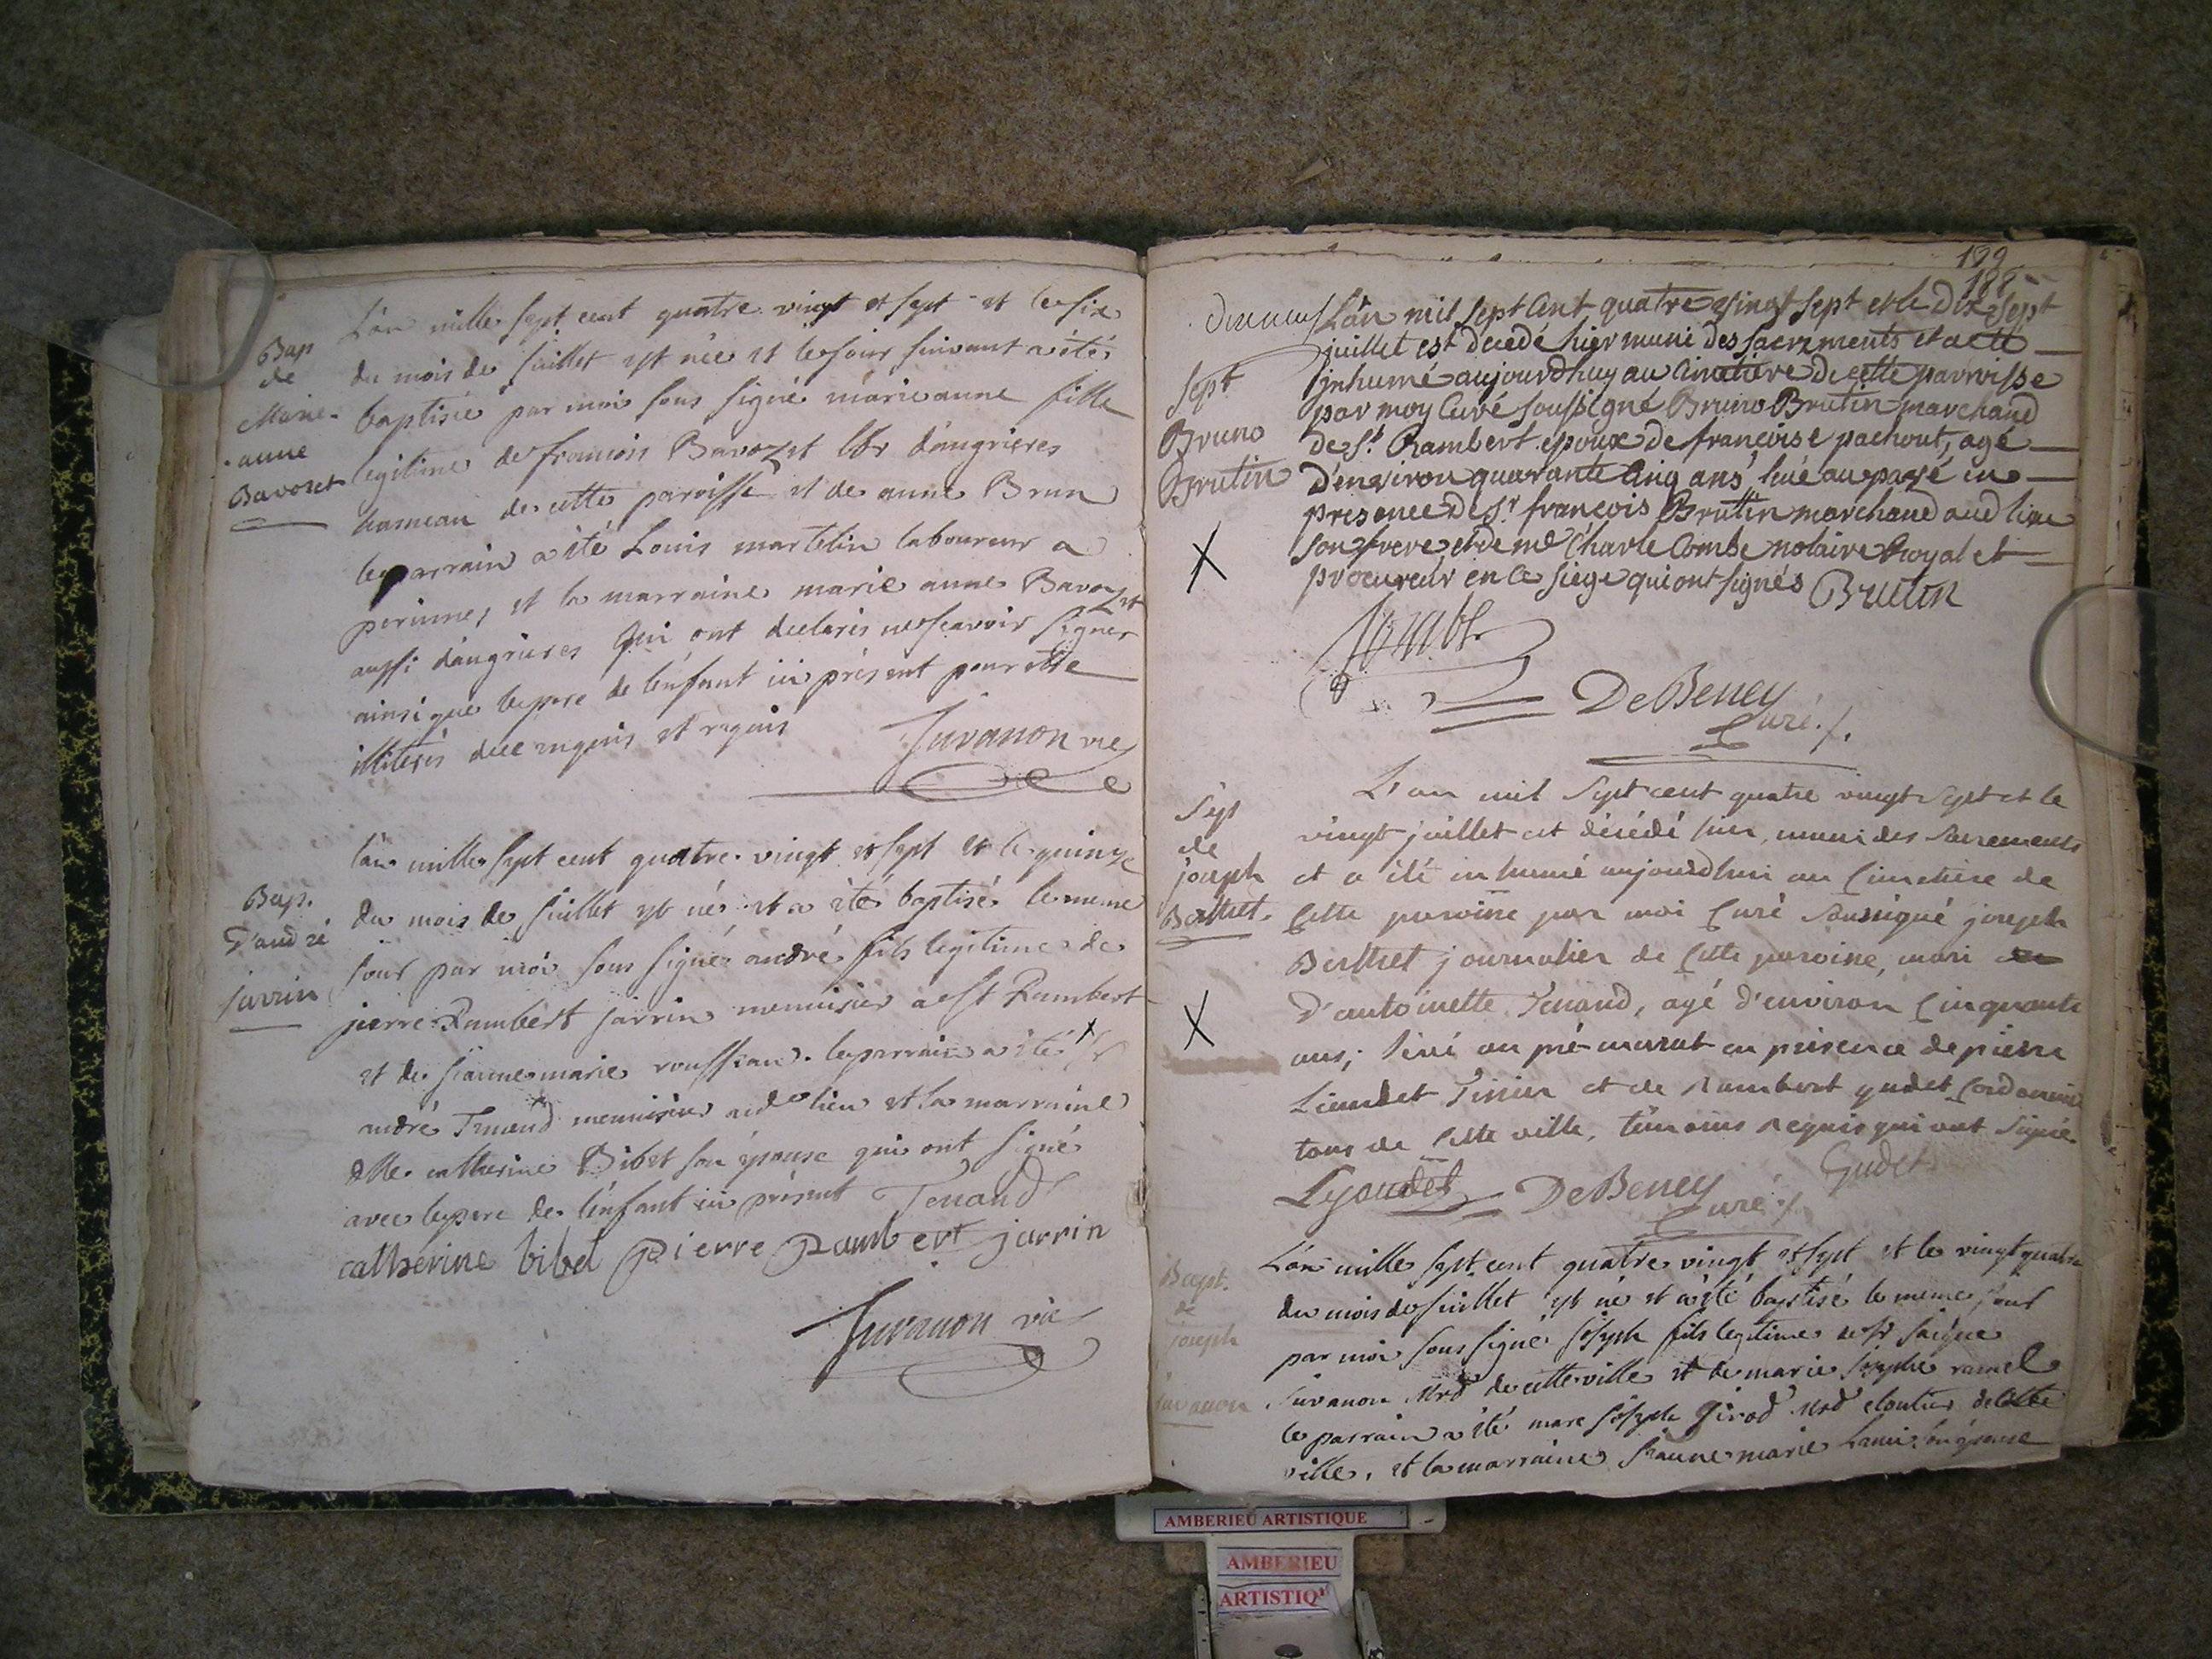 Bap
de
Marie-
anne
Bavozet
L'an mille sept cent quatre vingt et sept et le six
du mois de juillet est née et le jour suivant a été
baptisée par moi sous signé marie anne fille
legitime de francois Bavozet lbr d'angrieres
hameau de cette paroisse et de anne Brun
le parrain a été Louis martelin laboureur a
et la marraine marie anne Bavozet
aussi d'angrieres qui ont declarés ne scavoir signer
ainsi que le pere de l'enfant ici présent pour etre
illiterés de ce enquis et requis
Juvanon vic
Bap.
d'andré
jarrin
l'an mille sept cent quatre vingt et sept et le quinze
du mois de juillet est né et a été baptisé le meme
jour par moi sous signé andré fils legitime de
pierre Rambert jarrin menuisier a st Rambert
et de jeanne marie rousseau. le parrain a été
andré Tenand menuisier aud lieu et la marraine
dlle catherine Bibet son épouse qui ont signé
avec le pere de l'enfant ici présent Tenand
catherine bibet pierre Rambert jarrin
Juvanon vic
189
188
Sept
Bruno
Brutin
L'an mil sept Cent quatre vingt sept et le Dix sept
juillet est décedé hier muni des sacrements et a eté
inhumé aujourdhuy au Cimetière de cette parroisse
par moy Curé soussigné Bruno Brutin marchand
de St Rambert epoux de francoise pachout, agé
d'environ quarante Cinq ans, en
presence de Sr francois Brutin marchand aud lieu
son frere et de me Charle Combe notaire Royal et
procureur en ce siege qui ont signés Brutin
Combe
DeBeney
Curé./.
Sep
de
joseph
Berthet
L'an mil Sept cent quatre vingt Sept et le
vingt juillet est décédé hier, muni des Sacrements
et a été inhumé aujourdhui au Cimetière de
Cette paroisse par moi Curé Soussigné joseph
Berthet journalier de Cette paroisse, mari
D'antoinette Tenand, agé d'environ Cinquante
ans, en présence de pierre
Lieaudet Tissier et de Rambert gudet Cordonnier
tous de Cette ville, témoins requis qui ont Signé.
Lyaudet DeBeney Gudet
Curé./.
Bapt.
de
joseph
juvanon
L'an mille sept cent quatre vingt et sept et le vingt quatre
du mois de juillet est né et a été baptisé le meme jour
par moi sous signé joseph fils legitime de sr jacque
Juvanon Mrd de cette ville et de marie josephe ramel
le parrain a été marc joseph Girod Mrd cloutier de cette
ville, et la marraine jeanne marie Lami son épouse
AMBERIEU ARTISTIQUE
AMBERIEU
ARTISTIQ